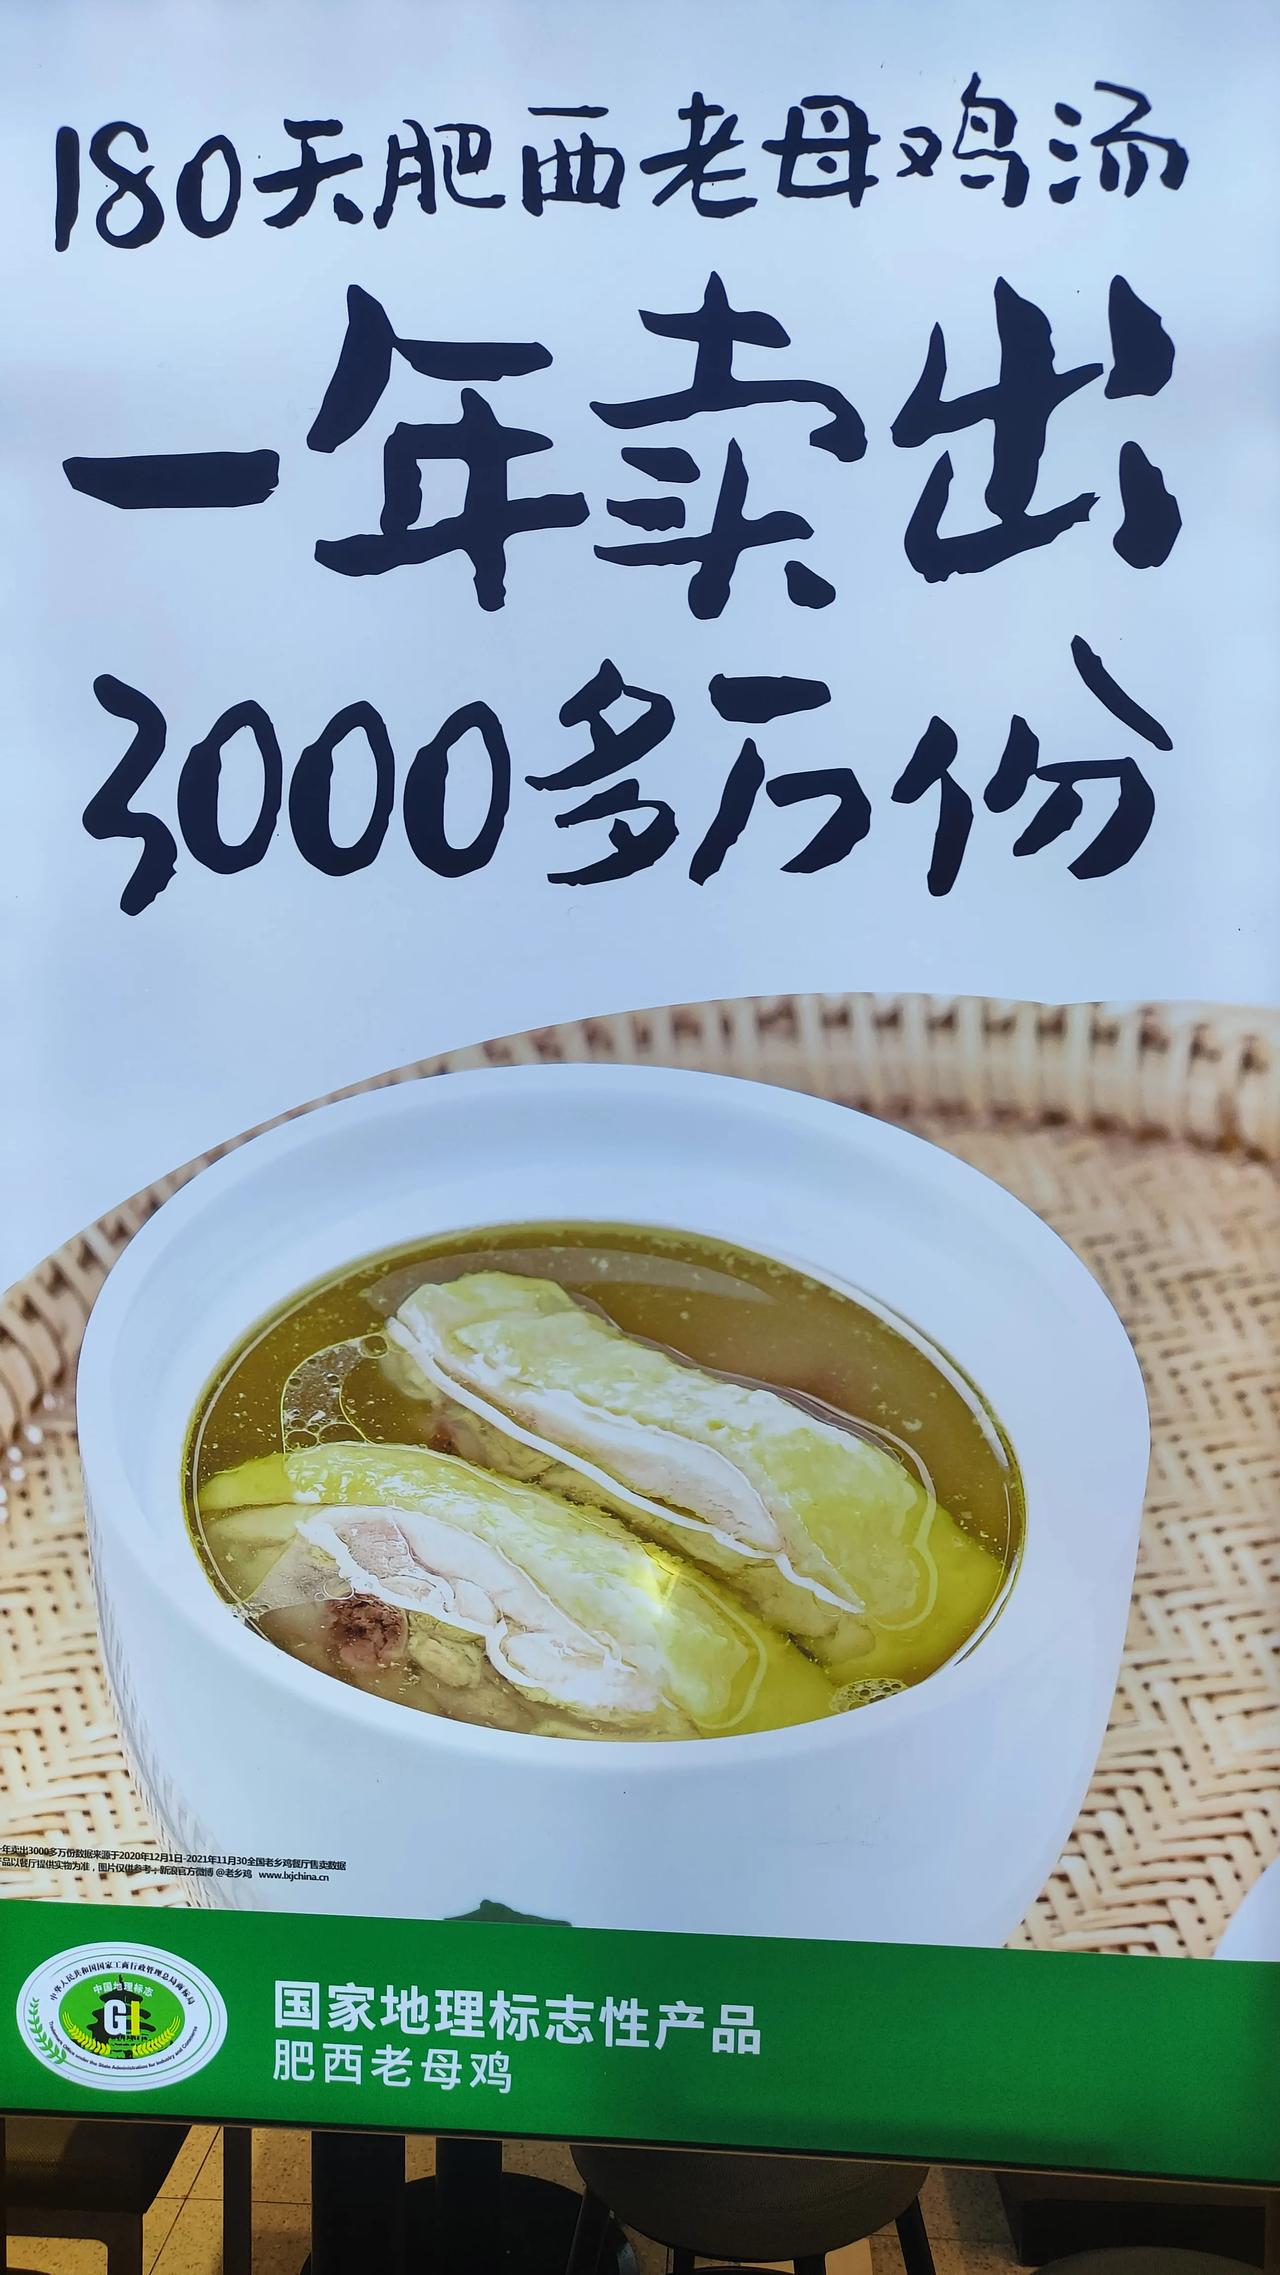 180天肥西老母鸡汤
一年卖出
3000多万份
一年卖出3000多万份数据来源于2020年12月1日-2021年11月30全国老乡鸡餐厅售卖数据
产品以餐厅提供实物为准，图片仅供参考；新浪官方微博@老乡鸡 www.lxjchina.cn
中华人民共和国国家工商行政管理总局商标局
中国地理标志
GI
Trademark Office under the State Administration for Industry and Commerce
国家地理标志性产品
肥西老母鸡